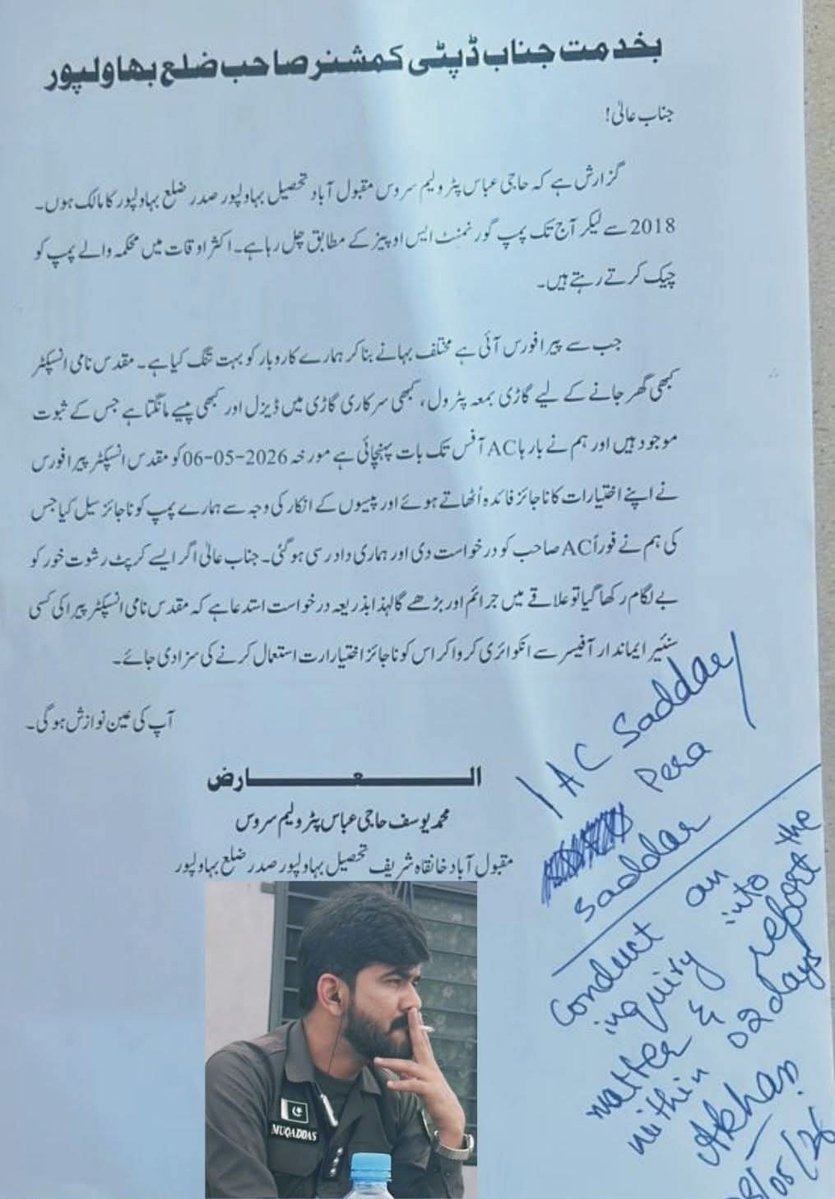 بخدمت جناب ڈپٹی کمشنر صاحب ضلع بہاولپور
جناب عالیٰ!
گزارش ہے کہ حاجی عباس پٹرولیم سروس مقبول آباد تحصیل بہاولپور صدر ضلع بہاولپور کا مالک ہوں۔
2018 سے لیکر آج تک پمپ گورنمنٹ ایس او پیز کے مطابق چل رہا ہے۔ اکثر اوقات میں محکمہ والے پمپ کو
چیک کرتے رہتے ہیں۔
جب سے پیرا فورس آئی ہے مختلف بہانے بنا کر ہمارے کاروبار کو بہت تنگ کیا ہے۔ مقدس نامی انسپکٹر
کبھی گھر جانے کے لیے گاڑی بمعہ پٹرول، کبھی سرکاری گاڑی میں ڈیزل اور کبھی پیسے مانگتا ہے جس کے ثبوت
موجود ہیں اور ہم نے بارہا AC آفس تک بات پہنچائی ہے مورخہ 06-05-2026 کو مقدس انسپکٹر پیرا فورس
نے اپنے اختیارات کا ناجائز فائدہ اُٹھاتے ہوئے اور پیسوں کے انکار کی وجہ سے ہمارے پمپ کو ناجائز سیل کیا جس
کی ہم نے فوراً AC صاحب کو درخواست دی اور ہماری دادرسی ہو گئی۔ جناب عالیٰ اگر ایسے کرپٹ رشوت خور کو
بے لگام رکھا گیا تو علاقے میں جرائم اور بڑھے گا لہذا بذریعہ درخواست استدعا ہے کہ مقدس نامی انسپکٹر پیرا کی کسی
سنئیر ایماندار آفیسر سے انکوائری کروا کر اس کو ناجائز اختیارارت استعمال کرنے کی سزا دی جائے۔
آپ کی عین نوازش ہوگی۔
العارض
محمد یوسف حاجی عباس پٹرولیم سروس
مقبول آباد خانقاہ شریف تحصیل بہاولپور صدر ضلع بہاولپور
AC Saddar
Pera
Saddar
Conduct an
inquiry into the
matter & report
within 02 days
MUQADDAS